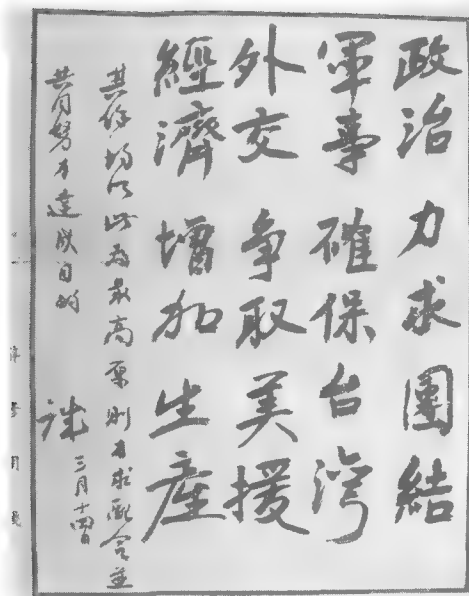 政治力求團結
軍事確保台灣
外交爭取美援
經濟增加生産
其餘均以此為最高原則力求配合並
共同努力達成目的
誠
三月十四日